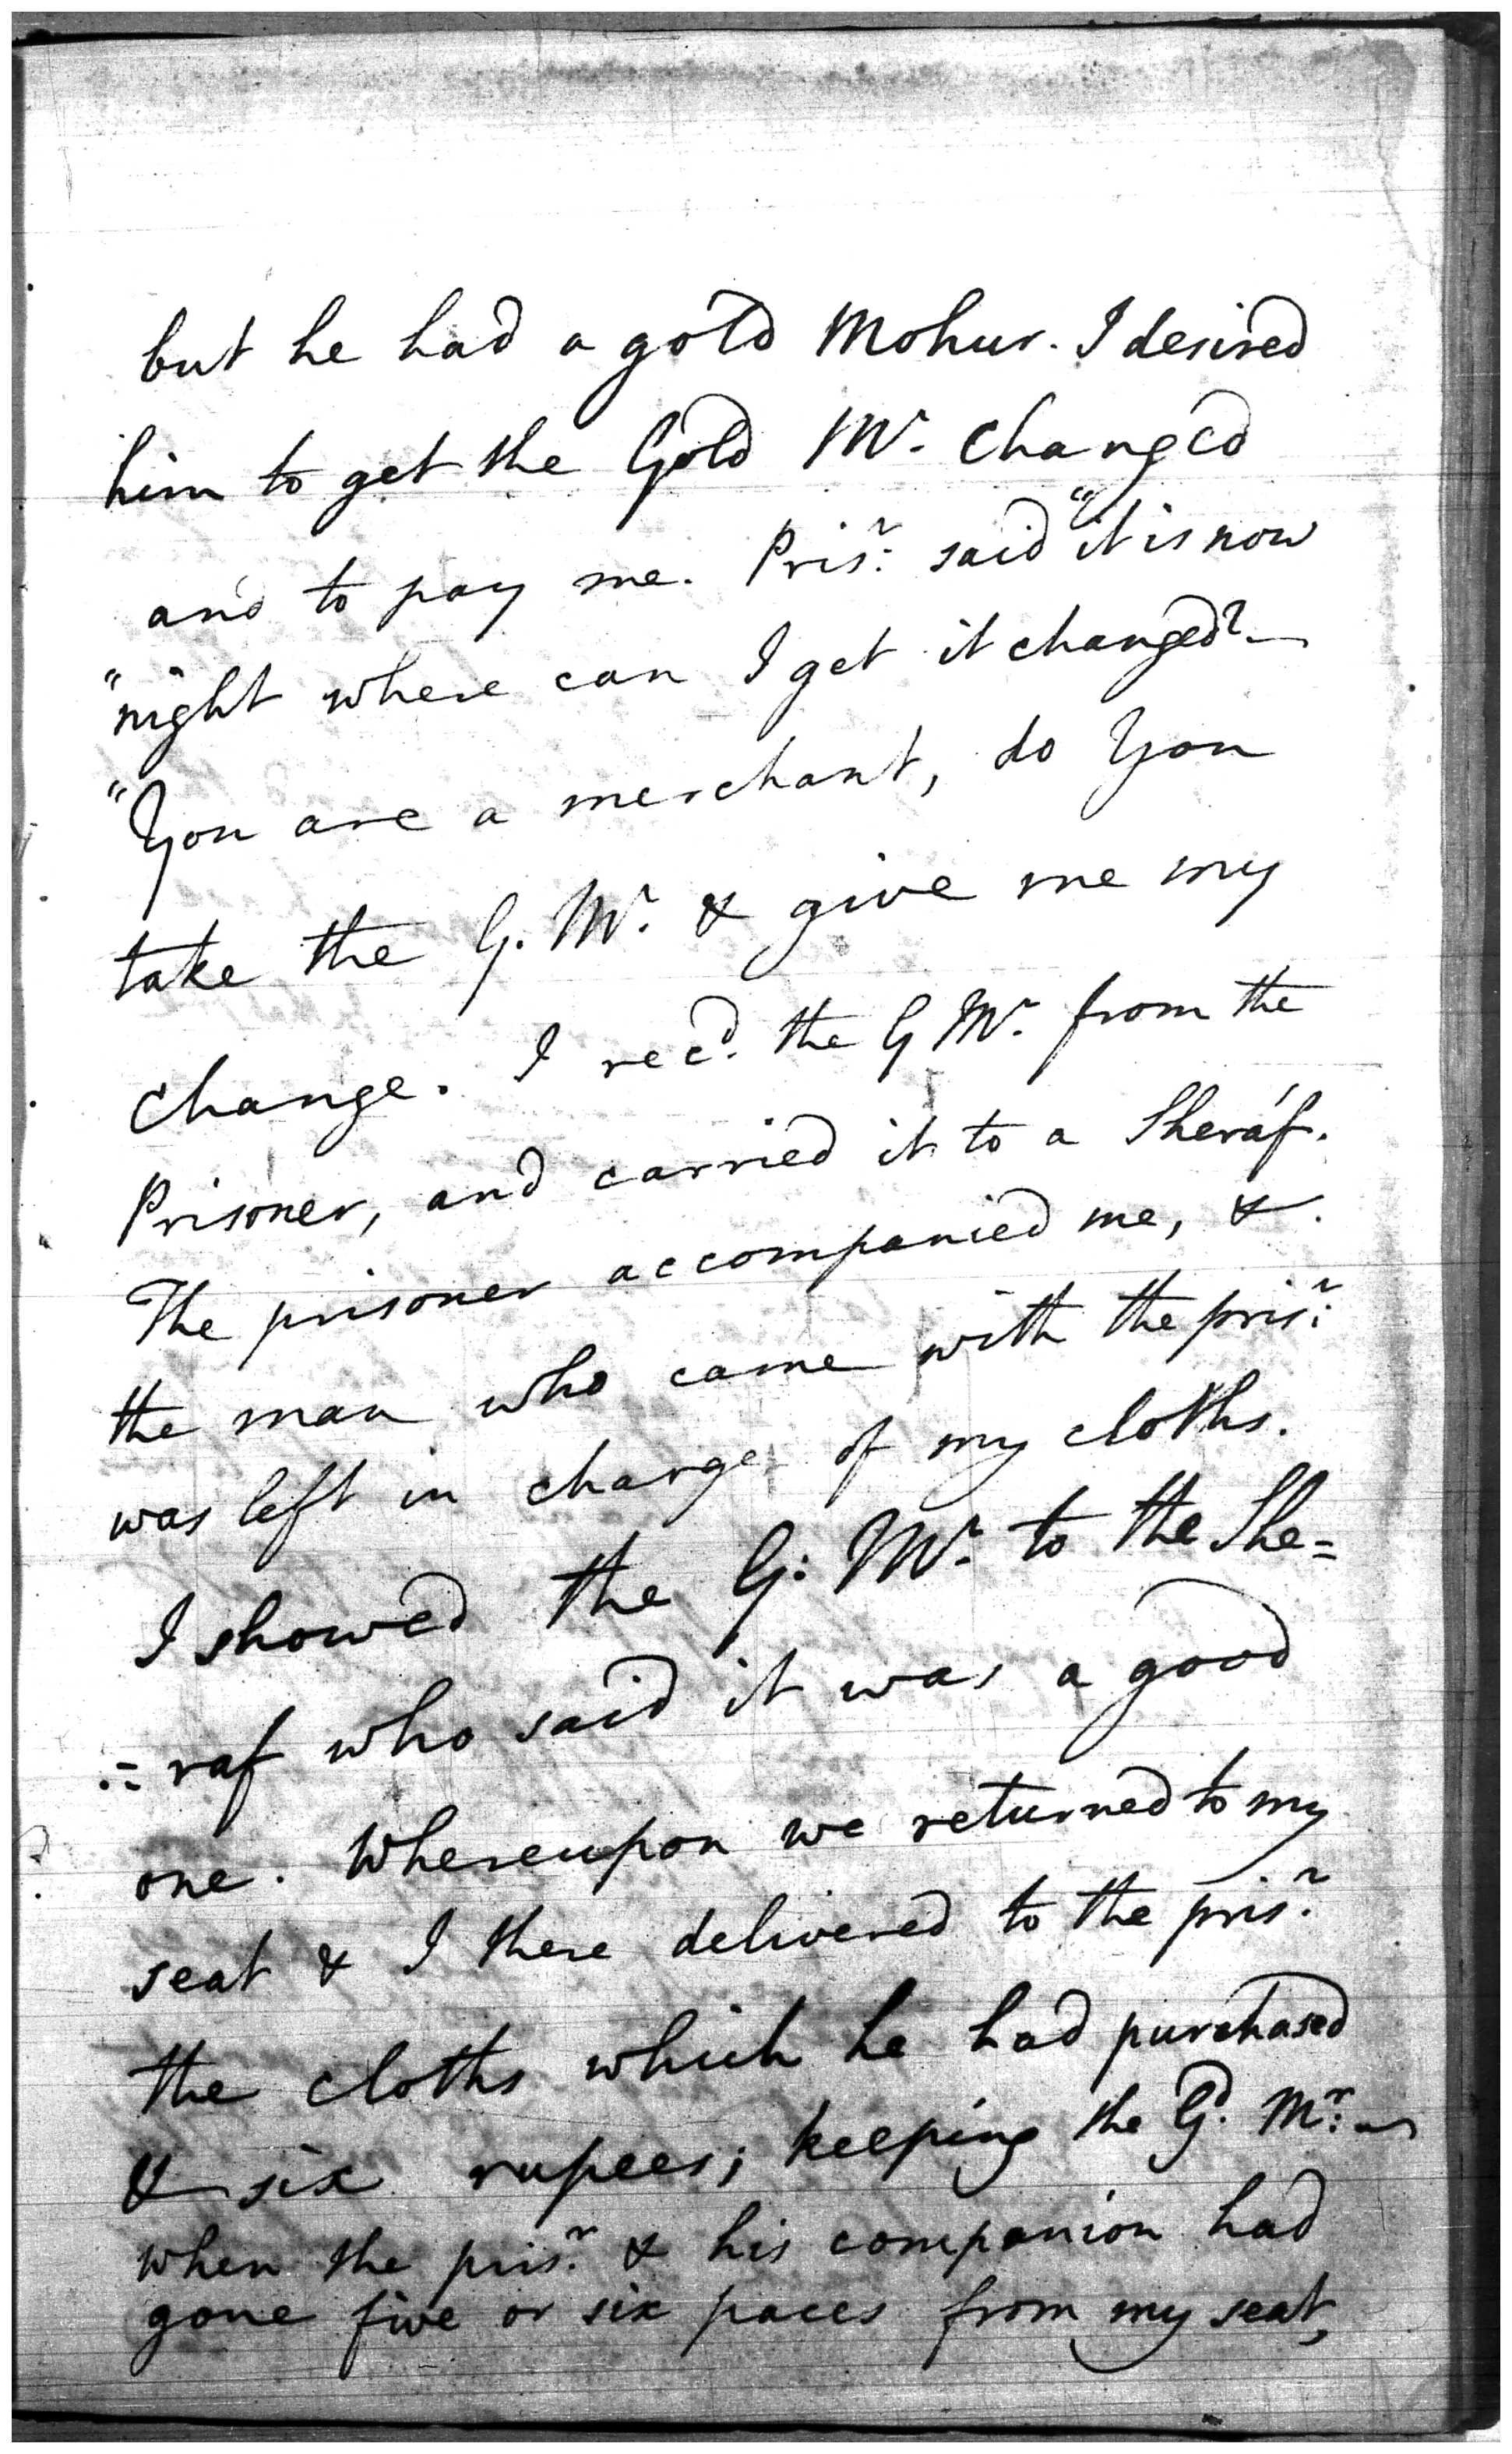 but he had a gold Mohur. I desired
him to get the Gold Mr. changed
and to pay me. Prisr: said "it is now
"night where can I get it changed?—
"You are a merchant, do you
take the G. Mr. & give me my
change. I recd. the G Mr. from the
Prisoner, and carried it to a Sheráf.
The prisoner accompanied me, &.
the man who came with the prisr:
was left in charge of my cloths.
I showed the G: Mr. to the She=
=raf who said it was a good
one. Whereupon we returned to my
seat & I there delivered to the prisr.
the cloths which he had purchased
& six rupees; keeping the Gd. Mr:—
when the prisr. & his companion had
gone five or six paces from my seat,